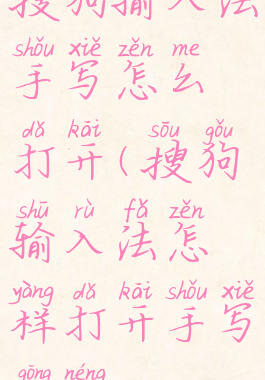 搜狗输入法
shǒu xiě zěn me
手写怎么
dǎ kāi sōu gǒu
打开(搜狗
shū rù fǎ zěn
输入法怎
yàng dǎ kāi shǒu xiě
样打开手写
gōng néng